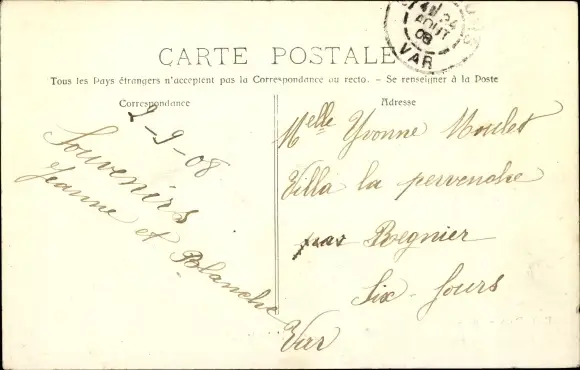 24
AOUT
08
VAR
CARTE POSTALE
Tous les Pays étrangers n'acceptent pas la Correspondance au recto. - Se renseigner à la Poste
Correspondance
2-9-08
Souvenirs
Jeanne et Blanche
Adresse
Melle Yvonne Moulet
Villa la pervenche
par Regnier
Six-Fours
Var